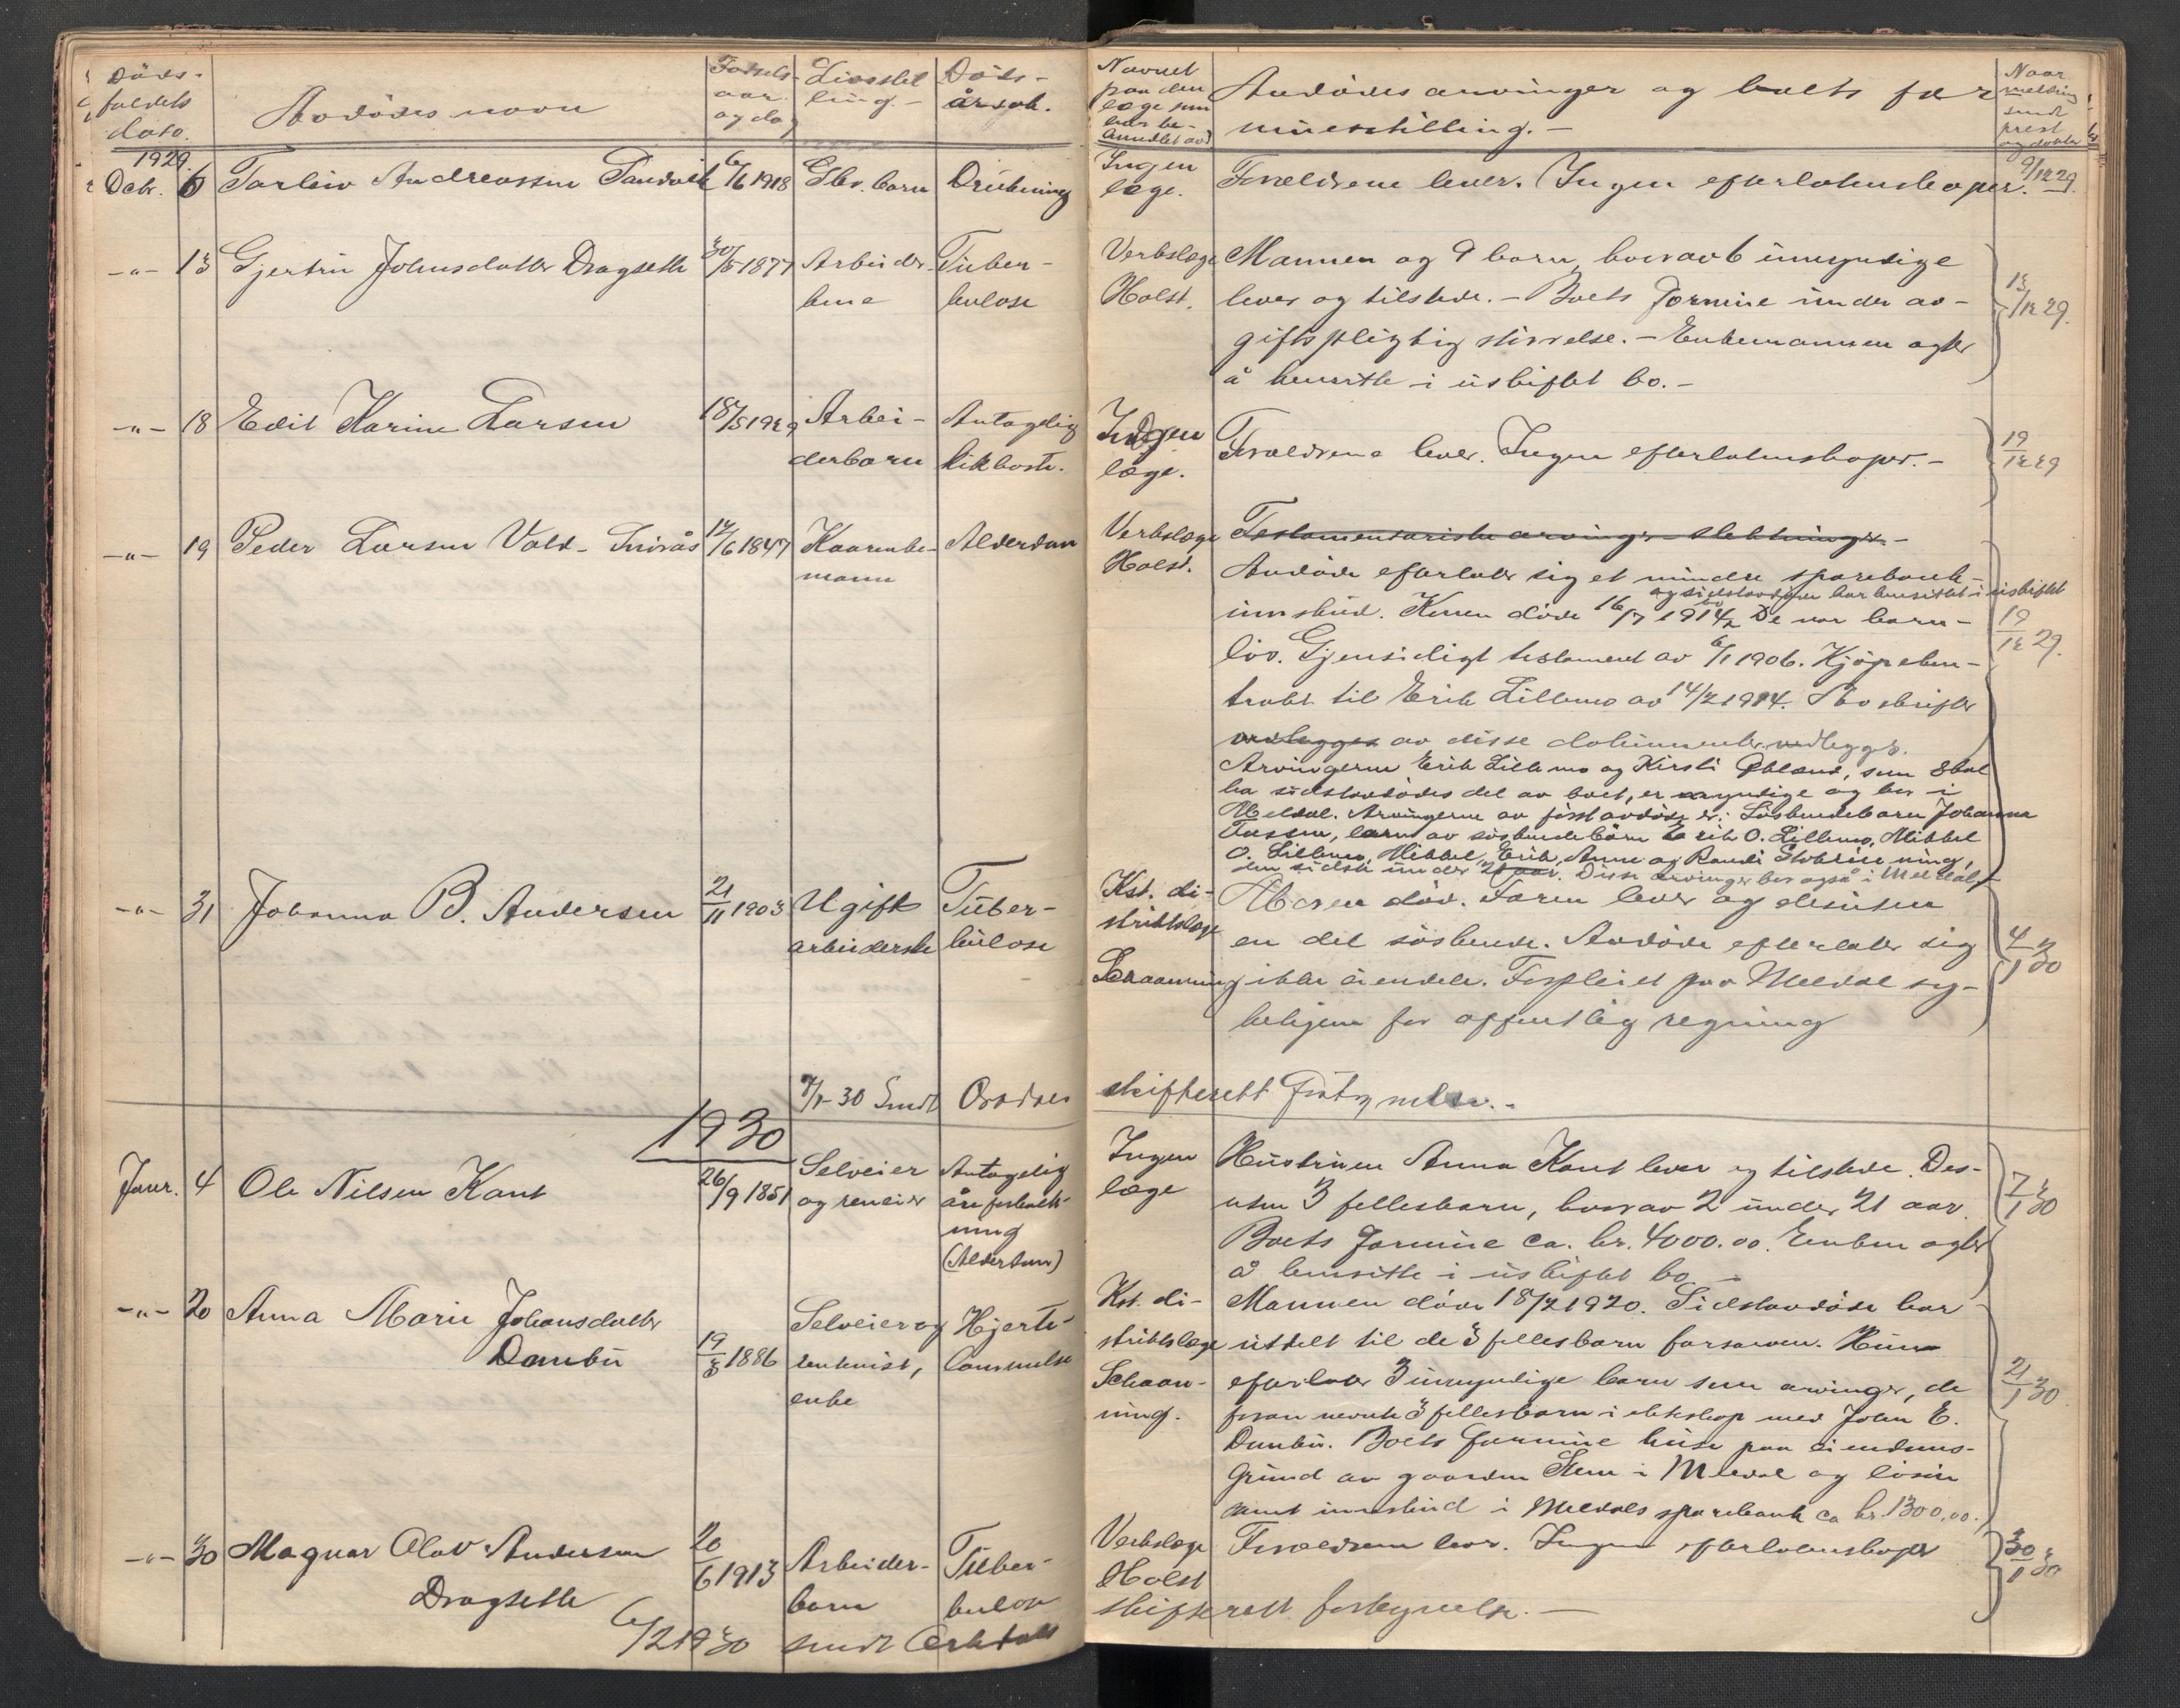 Døds-
faldets
dato.
Avdødes navn
Fødsels-
aar
og dag
Livsstil
ling.-
Døds-
årsak.
Navnet
paa den
læge som
har be-
handlet avd
Avdødes arvinger og boets for
muesstilling. -
Naar
melding
sendt
prest
og dokter
1929
Debr. 6 Torleiv Andreassen Sandvik 6/6 1918 Gbr. barn Drukning
Ingen
læge.
Forældrene lever. Ingen efterlatenskaper.
9/12 29.
-"- 13 Gjertru Johnsdatter Dragseth 30/5-1877 Arbeider-
kone
Tuber-
kulose
Verkslæge
Holst.
Mannen og 9 barn, hvorav 6 umyndige
lever og tilstede. - Boets formue under av-
giftspligtig størrelse. - Enkemannen agter
å hensitte i uskiftet bo. -
13/12 29.
-"- 18 Edit Karine Larsen 18/5 1929 Arbei-
derbarn
Antagelig
kikhoste.
Ingen
læge.
Forældrene lever. Ingen efterlatenskaper. -
19/12 29
-"- 19 Peder Larsen Vold - Snoås 12/6 1847 Kaarenke-
mann
Alderdom
Verkslæge
Holst.
Testamentariske arvinger slektninger. -
Avdøde efterlater sig et mindre sparebank-
og sidstavdøde har hensittet i uskiftet
bo
innskud. Konen døde 16/7 1914. De var barn-
løs. Gjensidigt testament av 6/1 1906. Kjøpekon-
trakt til Erik Lillemo av 14/2 1914. Avskrifter
vedlegges av disse dokumenter vedlegges.
Arvingerne Erik Lillemo og Kirsti Øhland, som skal
ha sidstavdødes del av boet, er myndige og bor i
Meldal. Arvingerne av førstavdøde er: Søskendebarn Johanna
Fossem, barn av søskendebarn Erik O. Lillemo, Mikkel
O. Lillemo, Mikkel, Erik, Anne og Randi
den sidste under 21 aar. Disse arvinger bor også i Meldal.
19/12 29.
-"- 31 Johanna B. Andersen 21/11 1903 Ugift
arbeiderske
Tuber-
kulose
Kst. di-
striktslæge
Schaanning
Moren død. Faren lever og desuten
en del søskende. Avdøde efterlater sig
ikke eiendeler. Forpleiet paa Meldal sy-
kehjem for offentlig regning
4/1 30
7/1-30 Sendt Orkdal
skifterett fortegnelse. -
1930
Janr. 4 Ole Nilsen Kant 26/9 1851 Selveier
og rentier
Antagelig
åreforkalk-
ning
(Alderdom)
Ingen
læge
Hustruen Anna Kant lever og tilstede. Des-
uten 3 fellesbarn, hvorav 2 under 21 aar.
Boets formue ca. kr. 4000.00. Enken agter
å hensitte i uskiftet bo. -
7/1 30
-"- 20 Anna Marie Johansdatter
Dambu
19/3 1886
Selveier og
rentenist,
enke
Hjerte-
lammelse
Kst. di-
striktslæge
Schaan-
ning.
Mannen døde 18/2 1920. Sidstavdøde har
utdelt til de 3 fellesbarn farsarven. Hun
efterlater 3 umyndige barn som arvinger, de
foran nevnte 3 fellesbarn i ekteskap med John E.
Dambu. Boets formue huse paa eiendoms-
grund av gaarden Stene i Meldal og løsøre
samt innskud i Meldals sparebank ca kr. 1300,00.
21/1 30
-"- 30 Magnar Olav Andersen
Dragseth
20/6 1913 Arbeider-
barn
Tuber-
kulose
Verkslæge
Holst
Forældrene lever. Ingen efterlatenskaper
30/1 30
6/2 1930 sendt Orkdals
skifterett fortegnelse. -